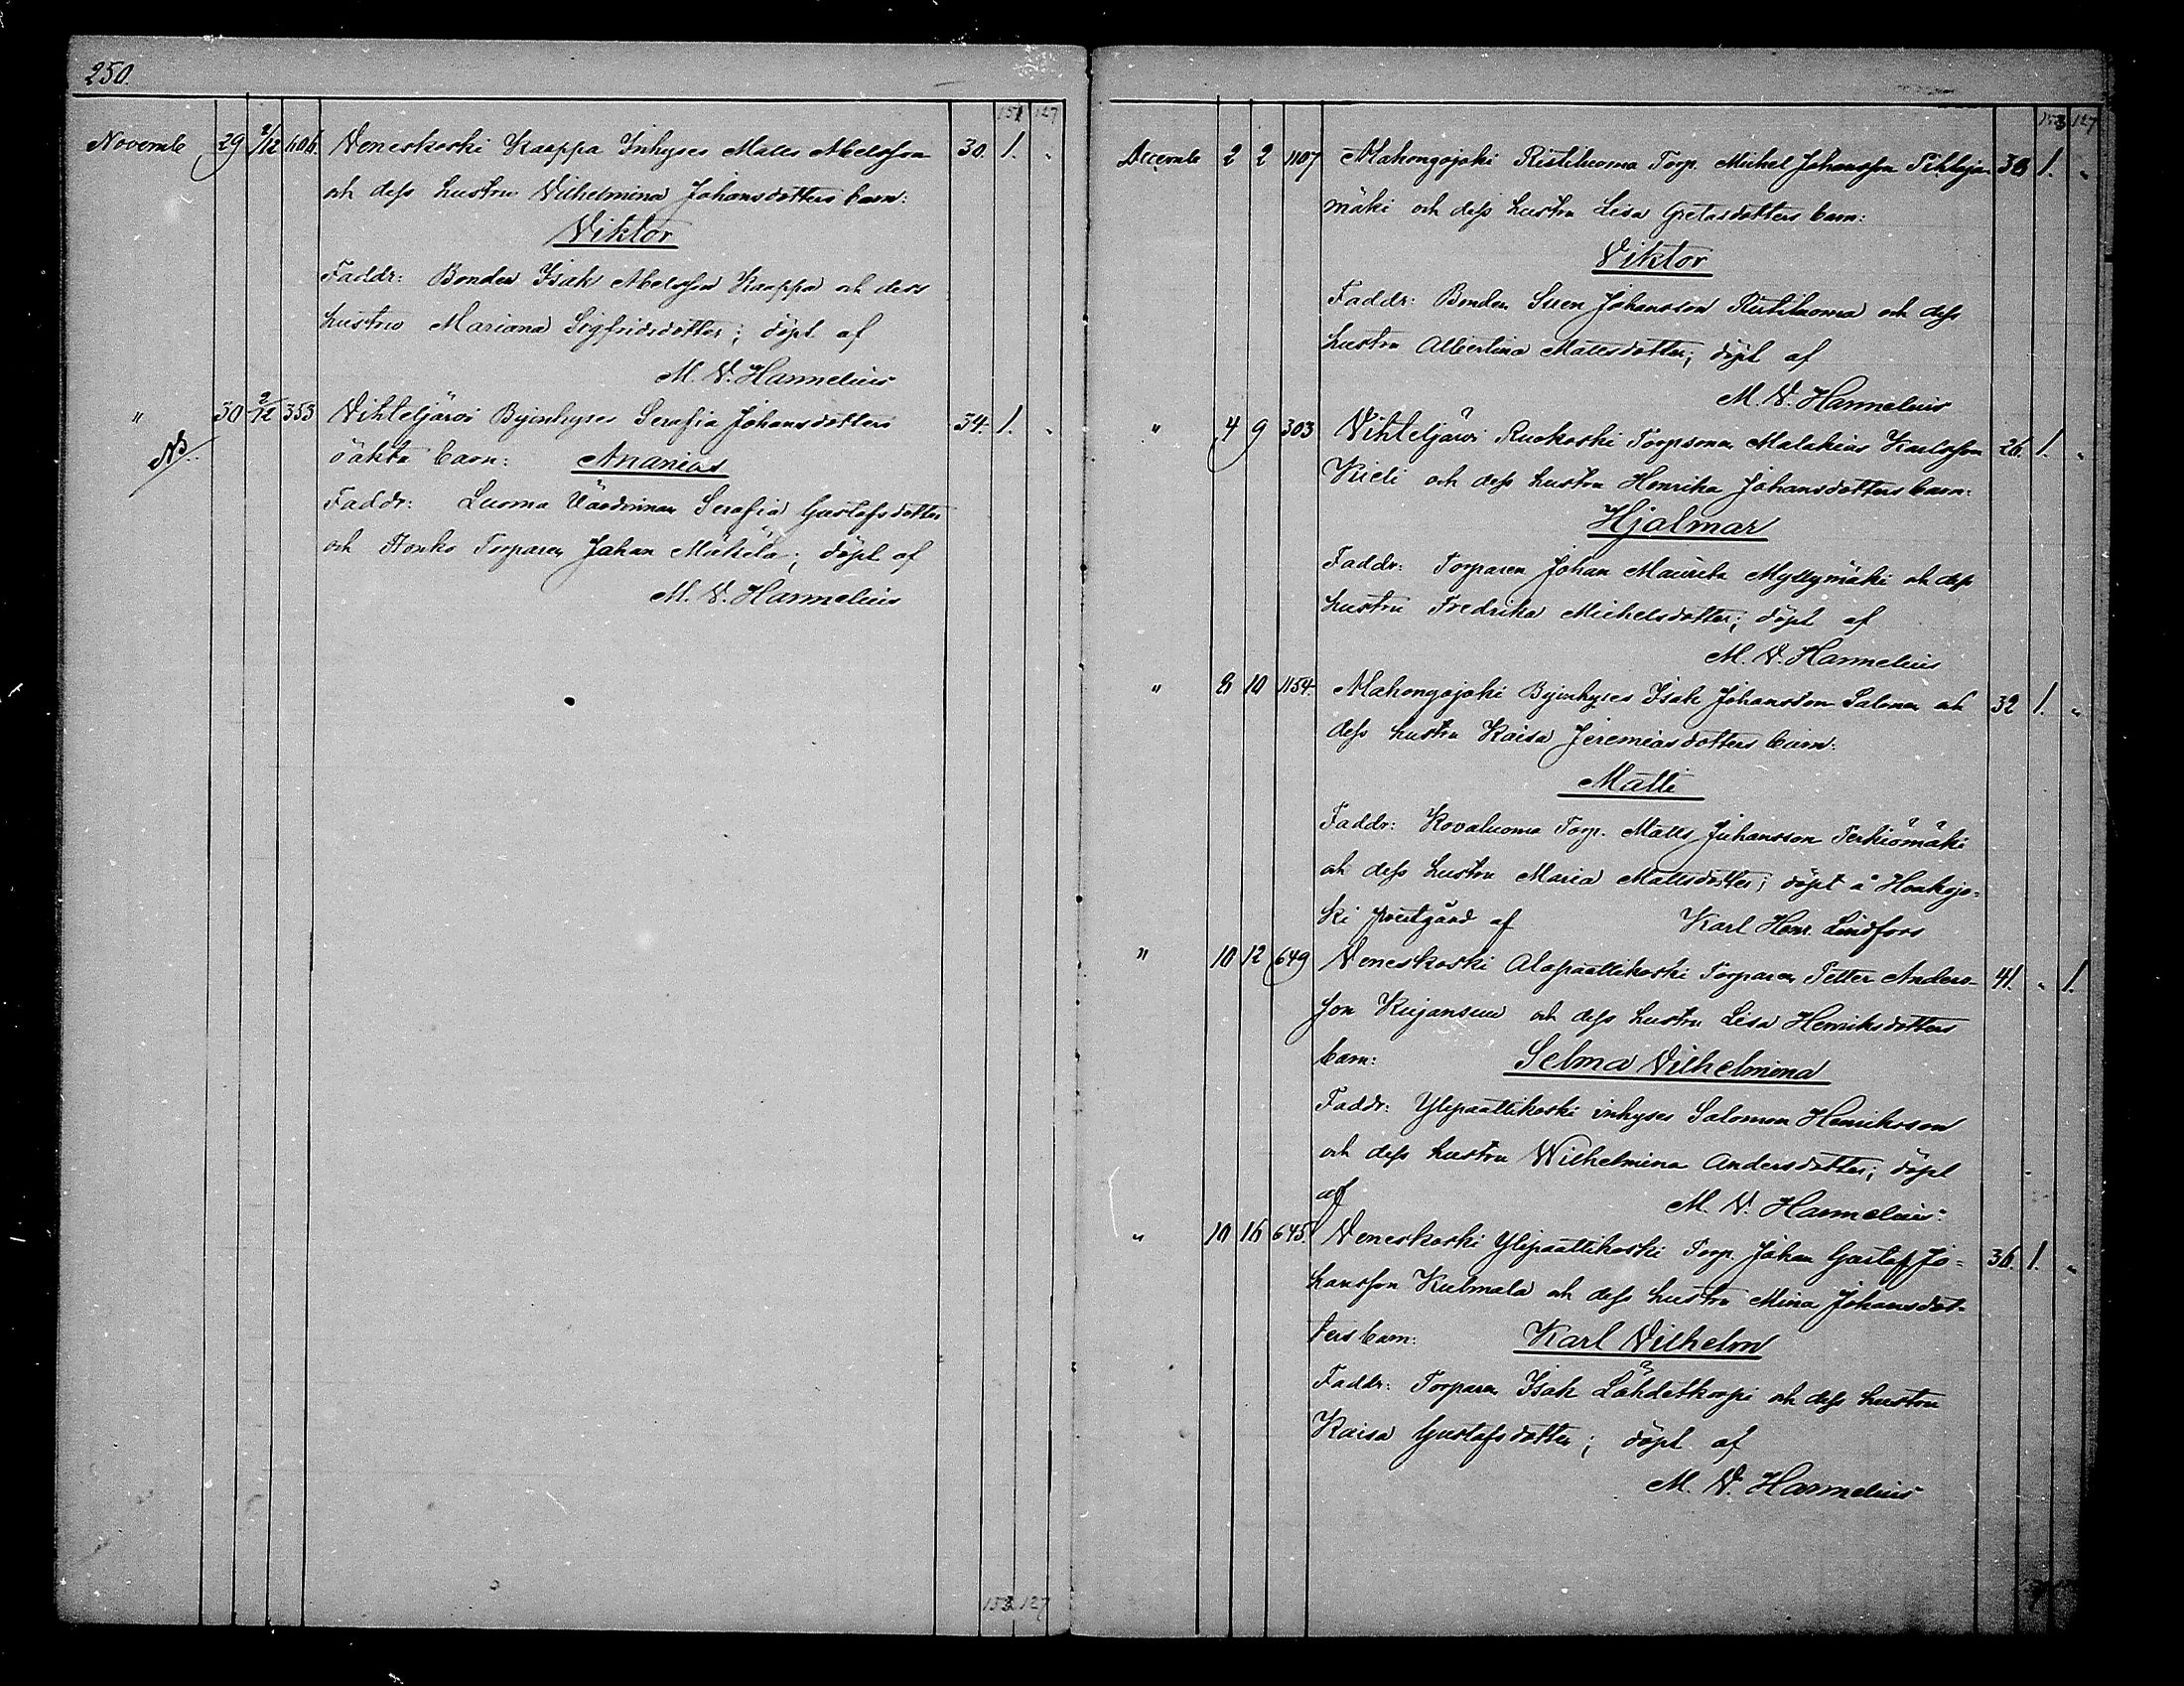 250.
151 127
Novembe 29 2/12 606. Veneskoski Kaappa Inhyses Matts Abelsson 30. 1. "
och dess hustru Vilhelmina Johansdotters barn:
Viktor
Faddr: Bonden Isak Abelsson Kaappa och dess
hustru Mariana Sigfridsdotter; döpt af
M. V. Hannelius
" 30 2/12 353 Vihteljärvi Byinhyses Serafia Johansdotters 34. 1. "
NB. oäkta barn: Ananias
Faddr: Luoma Värdinnan Serafia Gustafsdotter
och Honko Torparen Johan Mäkelä; döpt af
M. V. Hannelius
153 127
153 127
Decembe 2 2 1107 Mahongojoki Ristiluoma Torp. Michel Johansson Pihlaja- 38 1. "
mäki och dess hustru Lisa Gretasdotters barn:
Viktor
Faddr: Bonden Sven Johansson Ristiluoma och dess
hustru Albertina Mattsdotter; döpt af
M. V. Hannelius
" 4 9 303 Vihteljärvi Ruokoski Torpsonen Malakias Karlsson 26. 1. "
Kieli och dess hustru Henrika Johansdotters barn:
Hjalmar
Faddr: Torparen Johan Maurits Myllymäki och dess
hustru Fredrika Michelsdotter; döpt af
M. V. Hannelius
" 8 10 1154. Mahongojoki Byinhyses Isak Johansson Salonen och 32 1. "
dess hustru Kaisa Jeremiasdotters barn:
Matti
Faddr: Kovaluoma Torp. Matts Juhansson Perkiömäki
och dess hustru Maria Mattsdotter; döpt å Honkajo-
ki prestgård af Karl Henr. Lindfors
" 10 12 649 Veneskoski Alapaattikoski Torparen Petter Anders- 41. " 1.
son Kujansuu och dess hustru Lisa Henriksdotters
barn: Selma Vilhelmina
Faddr: Ylipaattikoski inhyses Salomon Henriksson
och dess hustru Wilhelmina Andersdotter; döpt
af M. V. Hannelius.
" 10 16 645. Veneskoski Ylipaattikoski Torp. Johan Gustaf Jo- 36. 1. "
hansson Kulmala och dess hustru Mina Johansdot-
ters barn: Karl Vilhelm
Faddr: Torparen Isak Lähdetkorpi och dess hustru
Kaisa Gustafsdotter; döpt af
M. V. Hannelius